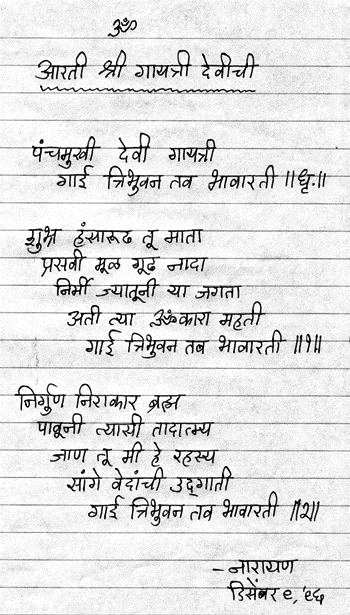 ॐ
आरती श्री गायत्री देवीची
पंचमुखी देवी गायत्री
गाई त्रिभुवन तव भावारती ॥धृ.॥
शुभ्र हंसारूढ तू माता
प्रसवी मूळ गूढ नादा
निर्मी ज्यातूनी या जगता
अती त्या ॐकारा महती
गाई त्रिभुवन तव भावारती ॥१॥
निर्गुण निराकार ब्रह्म
पावूनी त्यासी तादात्म्य
जाण तू मी हे रहस्य
सांगे वेदांची उद्गाती
गाई त्रिभुवन तव भावारती ॥२॥
– नारायण
डिसेंबर ९, '९६